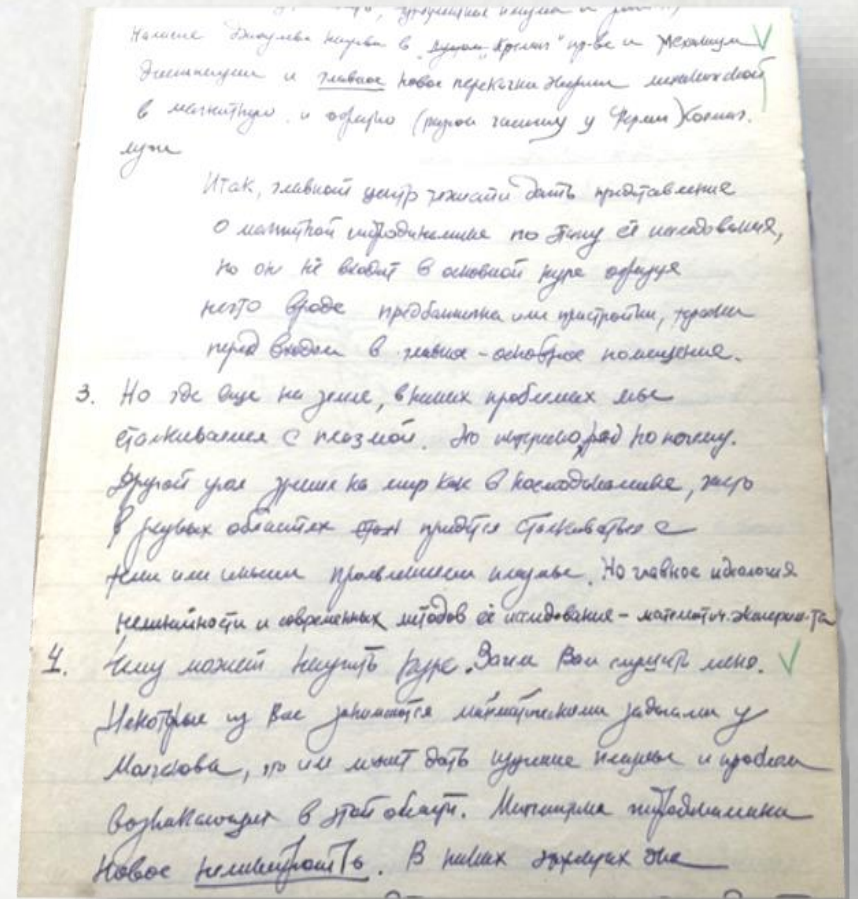 Наличие Джоулева нагрева в "других" пр-ве и механизм
диссипации и главное новое перекачки энергии механической
в магнитную и обратно (разгон частиц у Ферми) Космич.
лучи
Итак, главной дать представление
о магнитной гидродинамике по типу её исследования,
но он не входит в основной курс образуя
нечто вроде предбанника или пристройки, террасы
перед входом в главное - основное помещение.
3. Но где еще на земле, в наших проблемах мы
сталкиваемся с плазмой. Это интересно рад по почему.
Другой угол зрения на мир как в космодинамике, часто
в разных областях придётся сталкиваться с
теми или иными проявлениями плазмы. Но главное идеология
нелинейности и современных методов её исследования - математич. эксперим-та
4. Чему может научить курс. Зачем Вам слушать меня.
Некоторые из Вас занимаются математическими задачами у
, что им может дать изучение плазмы и проблем
возникающих в этой области. Магнитная гидродинамика
Новое нелинейность. В наших же